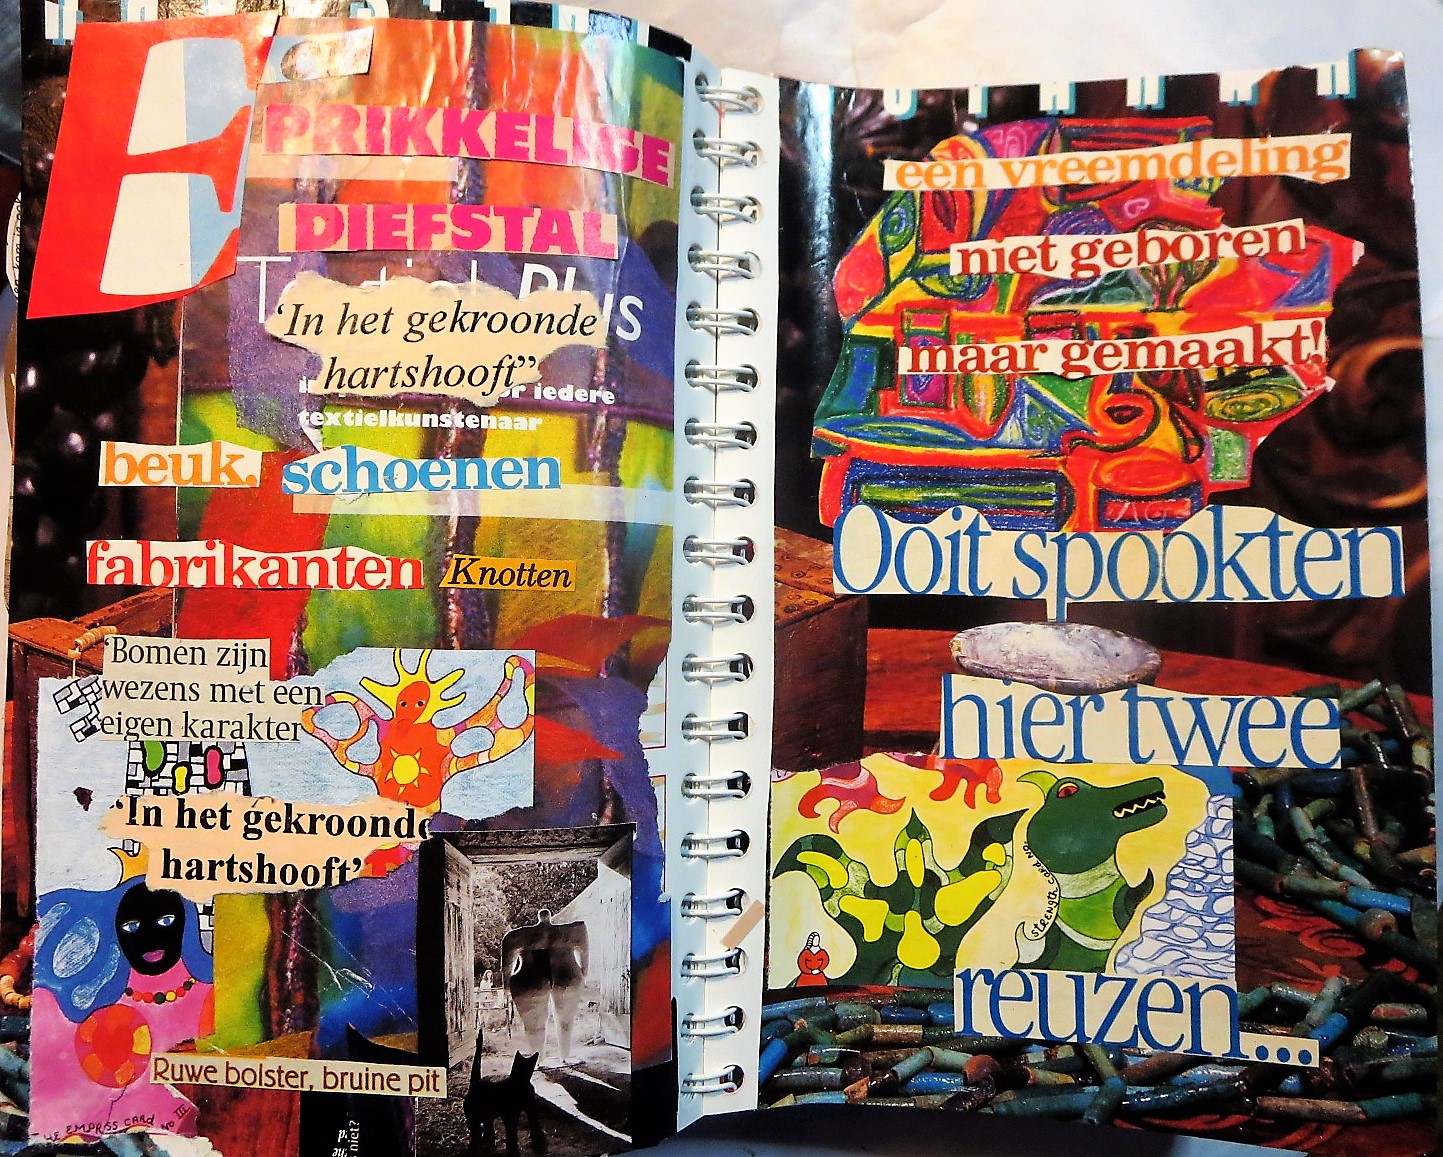 E
PRIKKELIGE
DIEFSTAL
Textiel Plus
‘In het gekroonde
hartshooft”
iedere
textielkunstenaar
beuk. schoenen
fabrikanten Knotten
‘Bomen zijn
wezens met een
eigen karakter
‘In het gekroonde
hartshooft’
Ruwe bolster, bruine pit
EMPRESS CARD NO III
niet?
een vreemdeling
niet geboren
maar gemaakt!
Ooit spookten
hier twee
strength CARD NO.
reuzen...